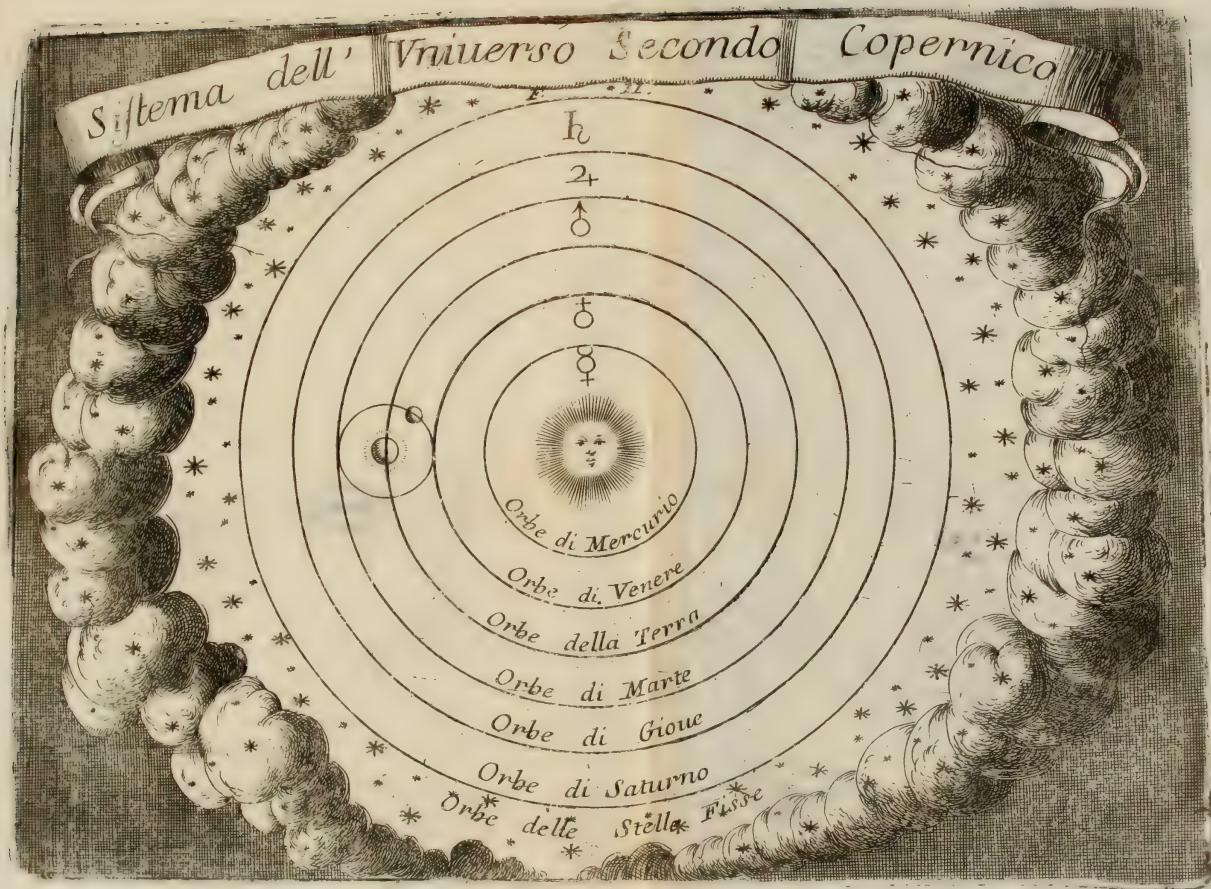 Siſtema dell' Vniuerso Secondo Copernico
♄
♃
♂
♀
☿
Orbe di Mercurio
Orbe di Venere
Orbe della Terra
Orbe di Marte
Orbe di Gioue
Orbe di Saturno
Orbe delle Stelle Fisse